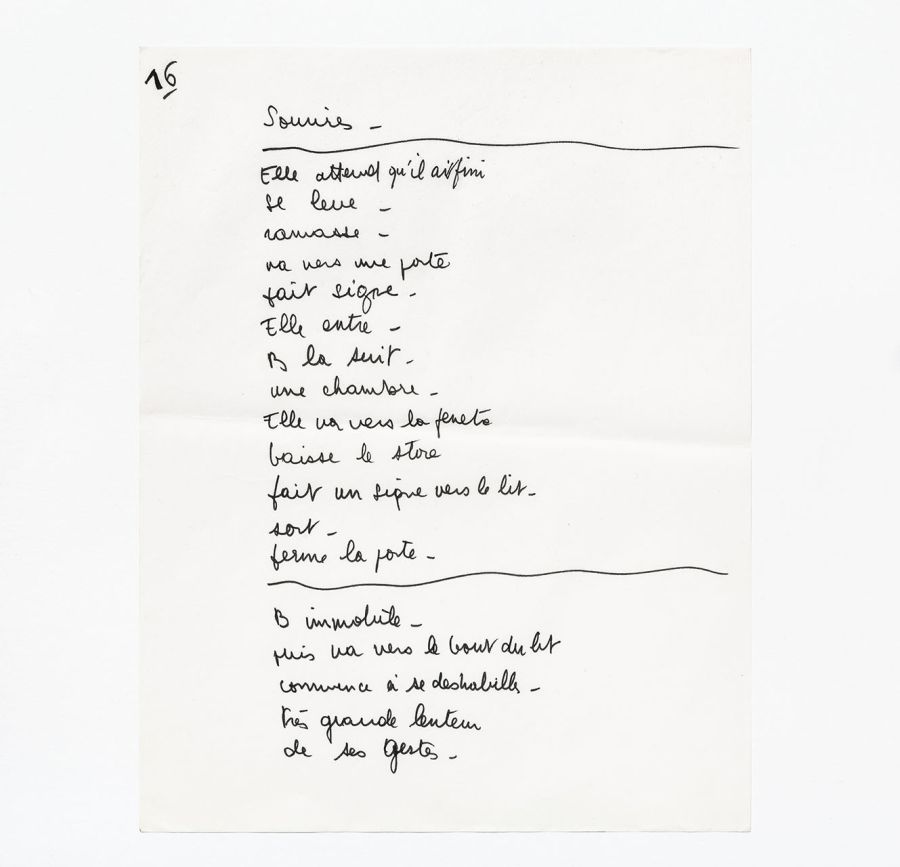 16
Sourires –
Elle attend qu'il ait fini
se leve –
ramasse –
va vers une porte
fait signe –
Elle entre –
B la suit –
une chambre –
Elle va vers la fenetre
baisse le store
fait un signe vers le lit –
sort –
ferme la porte –
B immobile –
puis va vers le bout du lit
commence à se deshabiller –
très grande lenteur
de ses gestes –